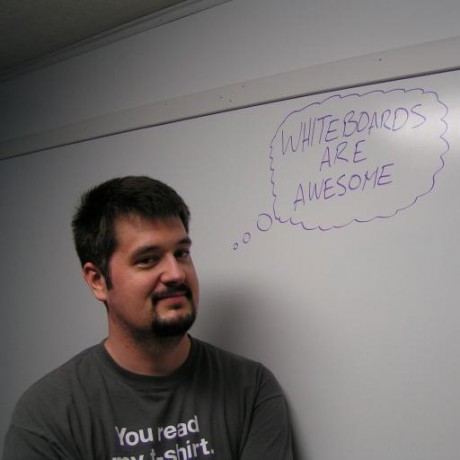 WHITEBOARDS
ARE
AWESOME
You read
my t-shirt.